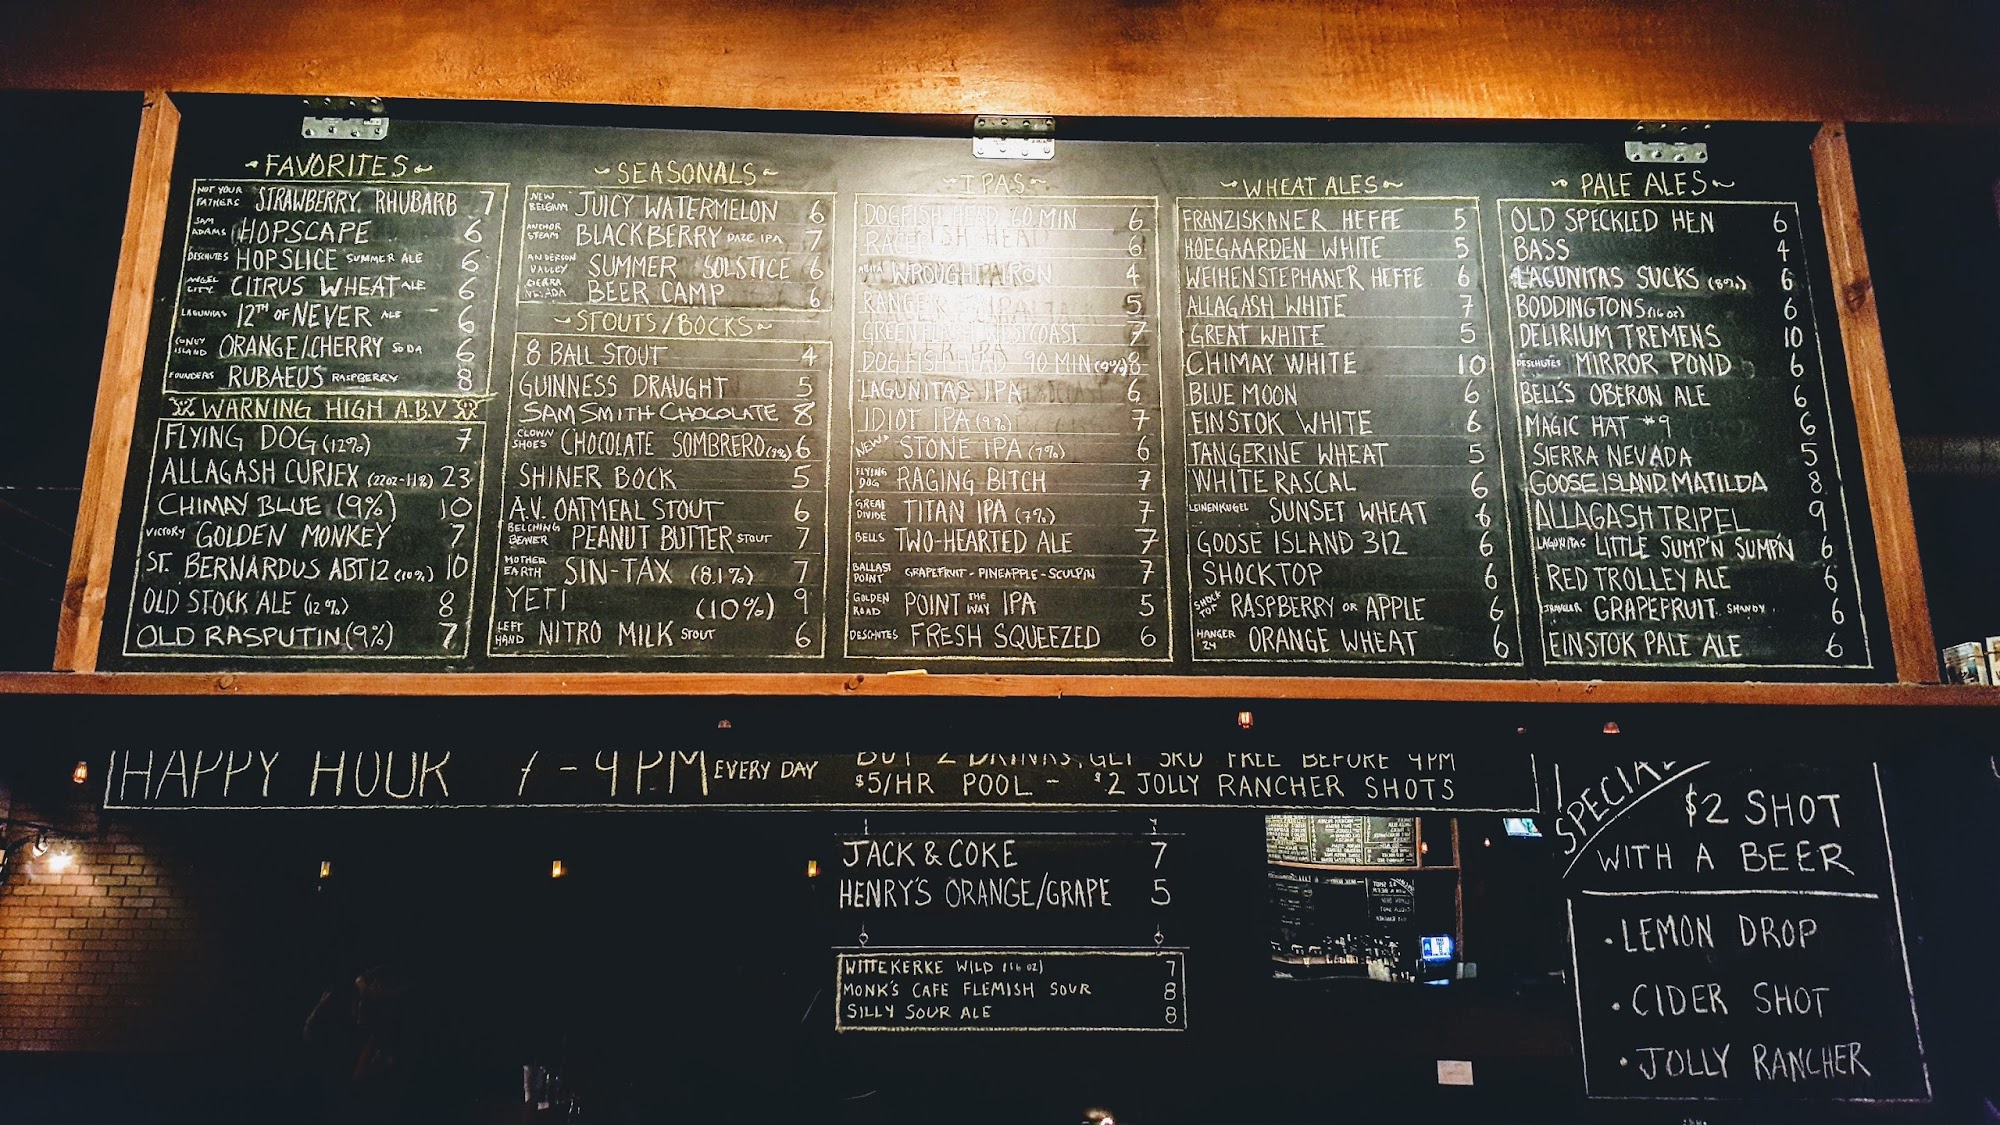 FAVORITES
NOT YOUR FATHERS STRAWBERRY RHUBARB 7
SAM ADAMS HOPSCAPE 6
DESCHUTES HOPSLICE SUMMER ALE 6
ANGEL CITY CITRUS WHEAT ALE 6
LAGUNITAS 12TH OF NEVER ALE 6
CONEY ISLAND ORANGE/CHERRY SODA 6
FOUNDERS RUBAEUS RASPBERRY 8
WARNING HIGH A.B.V
FLYING DOG (12%) 7
ALLAGASH CURIEX (22OZ-11%) 23
CHIMAY BLUE (9%) 10
VICTORY GOLDEN MONKEY 7
ST. BERNARDUS ABT 12 (10%) 10
OLD STOCK ALE (12%) 8
OLD RASPUTIN (9%) 7
SEASONALS
NEW BELGIUM JUICY WATERMELON 6
ANCHOR STEAM BLACKBERRY DAZE IPA 7
ANDERSON VALLEY SUMMER SOLSTICE 6
SIERRA NEVADA BEER CAMP 6
STOUTS/BOCKS
8 BALL STOUT 4
GUINNESS DRAUGHT 5
SAM SMITH CHOCOLATE 8
CLOWN SHOES CHOCOLATE SOMBRERO (9%) 6
SHINER BOCK 5
A.V. OATMEAL STOUT 6
BELCHING BEAVER PEANUT BUTTER STOUT 7
MOTHER EARTH SIN-TAX (8.1%) 7
YETI (10%) 9
LEFT HAND NITRO MILK STOUT 6
IPAS
DOGFISH HEAD 60 MIN 6
6
ABITA WROUGHT IRON 4
RANGER 5
GREEN FLASH WESTCOAST 7
DOGFISH HEAD 90 MIN (9%) 8
LAGUNITAS IPA 6
IDIOT IPA (9%) 7
NEW STONE IPA (7%) 6
FLYING DOG RAGING BITCH 7
GREAT DIVIDE TITAN IPA (7%) 7
BELLS TWO-HEARTED ALE 7
BALLAST POINT GRAPEFRUIT-PINEAPPLE-SCULPIN 7
GOLDEN ROAD POINT THE WAY IPA 5
DESCHUTES FRESH SQUEEZED 6
WHEAT ALES
FRANZISKANER HEFFE 5
HOEGAARDEN WHITE 5
WEIHENSTEPHANER HEFFE 6
ALLAGASH WHITE 7
GREAT WHITE 5
CHIMAY WHITE 10
BLUE MOON 6
EINSTOK WHITE 6
TANGERINE WHEAT 5
WHITE RASCAL 6
LEINENKUGEL SUNSET WHEAT 6
GOOSE ISLAND 312 6
SHOCKTOP 6
SHOCK TOP RASPBERRY OR APPLE 6
HANGER 24 ORANGE WHEAT 6
PALE ALES
OLD SPECKLED HEN 6
BASS 4
LAGUNITAS SUCKS (8%) 6
BODDINGTONS (16 OZ) 6
DELIRIUM TREMENS 10
DESCHUTES MIRROR POND 6
BELL'S OBERON ALE 6
MAGIC HAT #9 6
SIERRA NEVADA 5
GOOSE ISLAND MATILDA 8
ALLAGASH TRIPEL 9
LAGUNITAS LITTLE SUMP'N SUMP'N 6
RED TROLLEY ALE 6
TRAVELER GRAPEFRUIT SHANDY 6
EINSTOK PALE ALE 6
HAPPY HOUR 1-4PM EVERY DAY
BUY 2 DRINKS, GET 3RD FREE BEFORE 4PM
$5/HR POOL - $2 JOLLY RANCHER SHOTS
JACK & COKE 7
HENRY'S ORANGE/GRAPE 5
WITTEKERKE WILD (16 OZ) 7
MONK'S CAFE FLEMISH SOUR 8
SILLY SOUR ALE 8
SPECIAL
$2 SHOT
WITH A BEER
• LEMON DROP
• CIDER SHOT
• JOLLY RANCHER